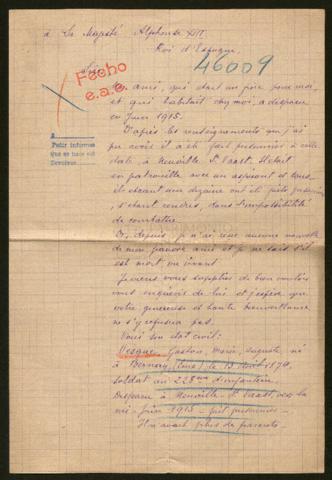 à Sa Majesté Alphonse XIII
Roi d'Espagne.
46009
Sire
Fecho
e.a.e
Un ami, qui était un père pour moi,
et qui habitait chez moi, a disparu
en Juin 1915.
D'après les renseignements que j'ai
pu avoir il a été fait prisonnier à cette
date, à Neuville St Vaast. Il était
en patrouille avec un aspirant et tous,
et étant une dizaine ont été faits prisonniers,
s'étant rendus, dans l'impossibilité
de combattre.
Or, depuis, je n'ai reçu aucune nouvelle
de mon pauvre ami et je ne sais s'il
est mort ou vivant
Je viens vous supplier de bien vouloir
vous enquérir de lui et j'espère que
votre généreuse et haute bienveillance
ne s'y refusera pas.
Voici son état civil:
Gaston Marie, Auguste né
à Bernay, (Eure) le 13 Août 1879,
soldat au 228me d'infanterie.
Disparu à Neuville-St Vaast, vers la
mi-Juin 1915 - fait prisonnier -
Il n'avait plus de parents.
Pedir informes